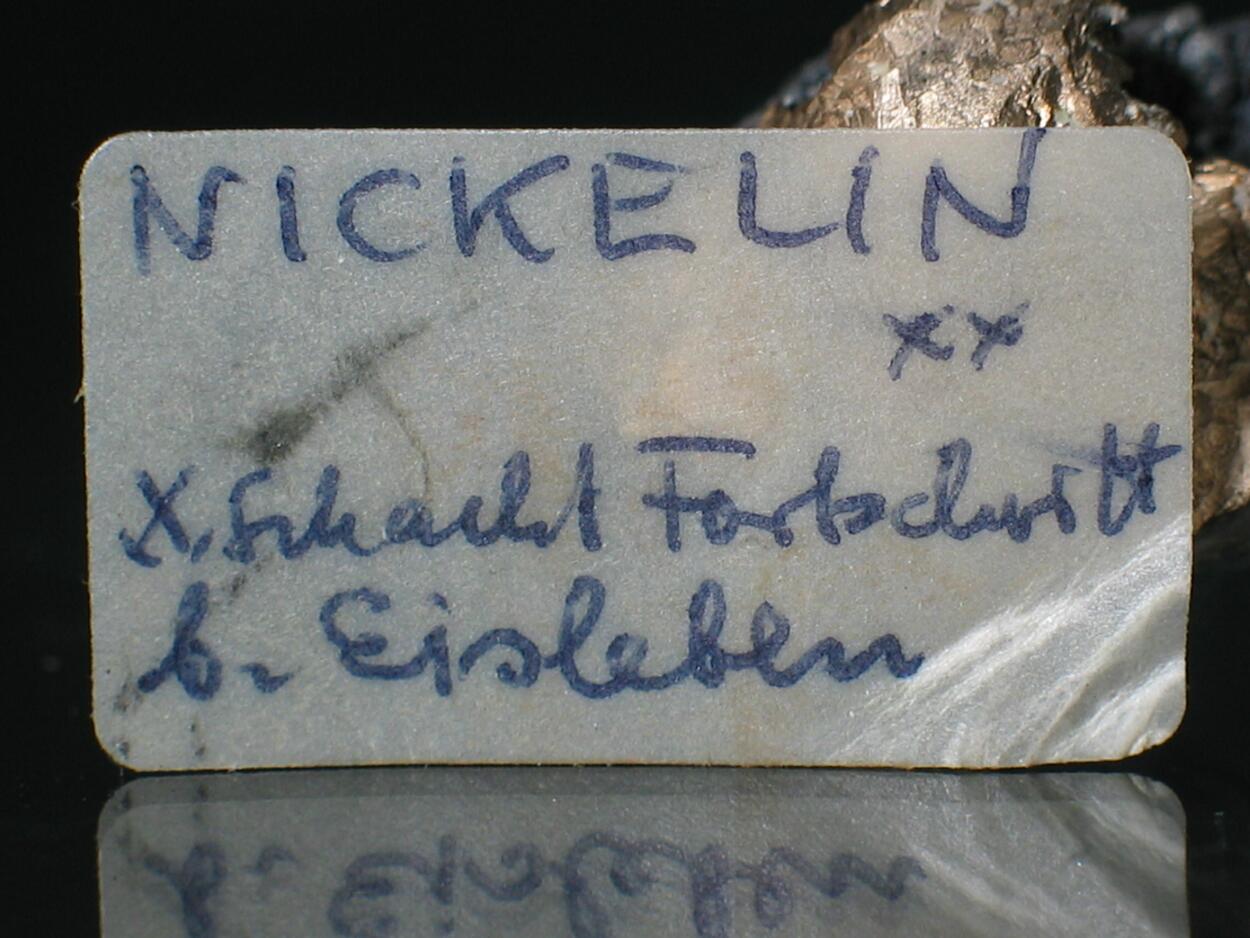 NICKELIN
xx
X. Schacht Fortschritt
b. Eisleben